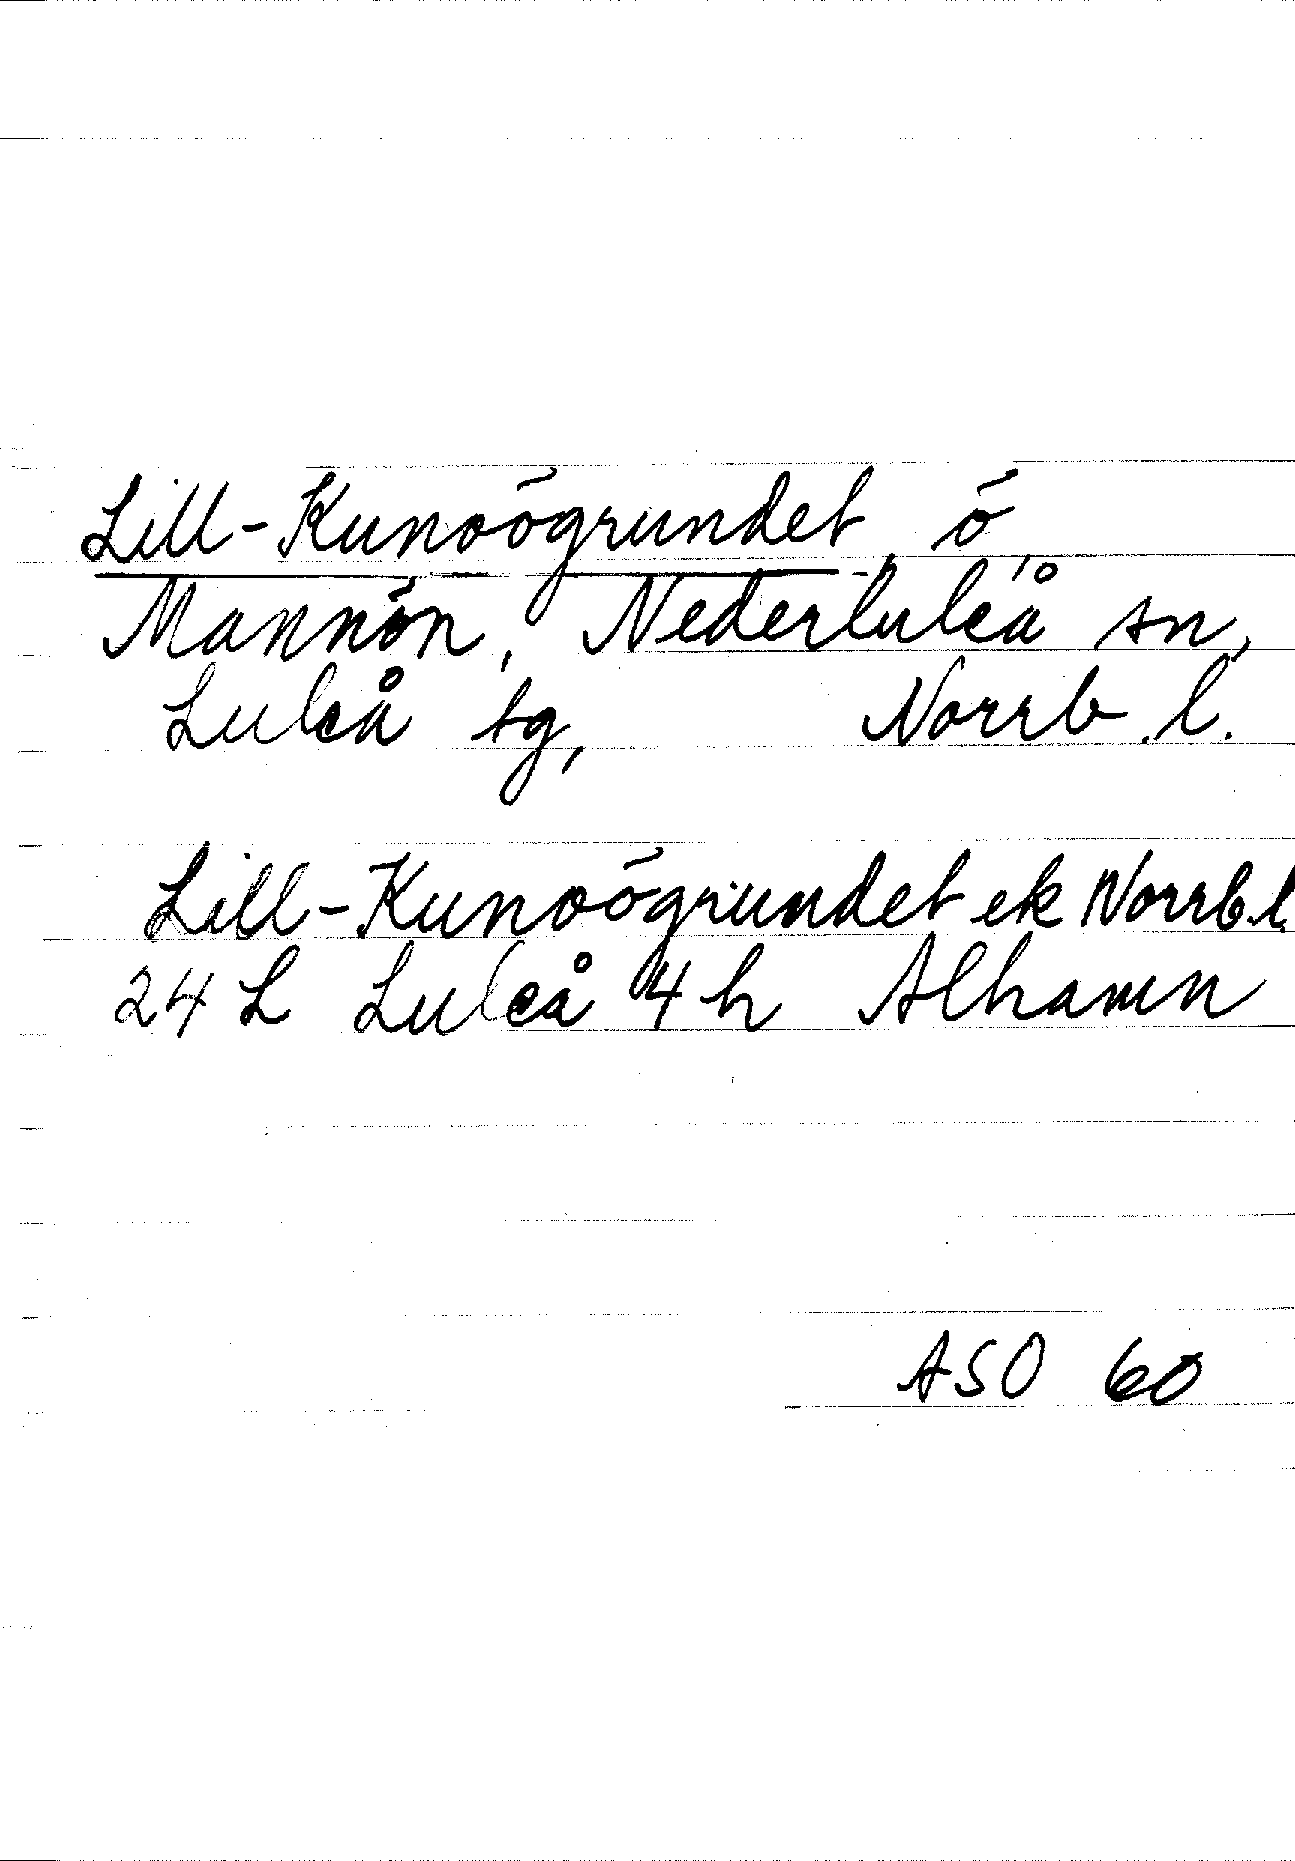 Lill-Kunoögrundet, ö,
Mannön, Nederluleå sn,
Luleå sg, Norrb. l.
Lill-Kunoögrundet ek Norrb. l.
24 L Luleå 4 h Alhamn
ASO 60